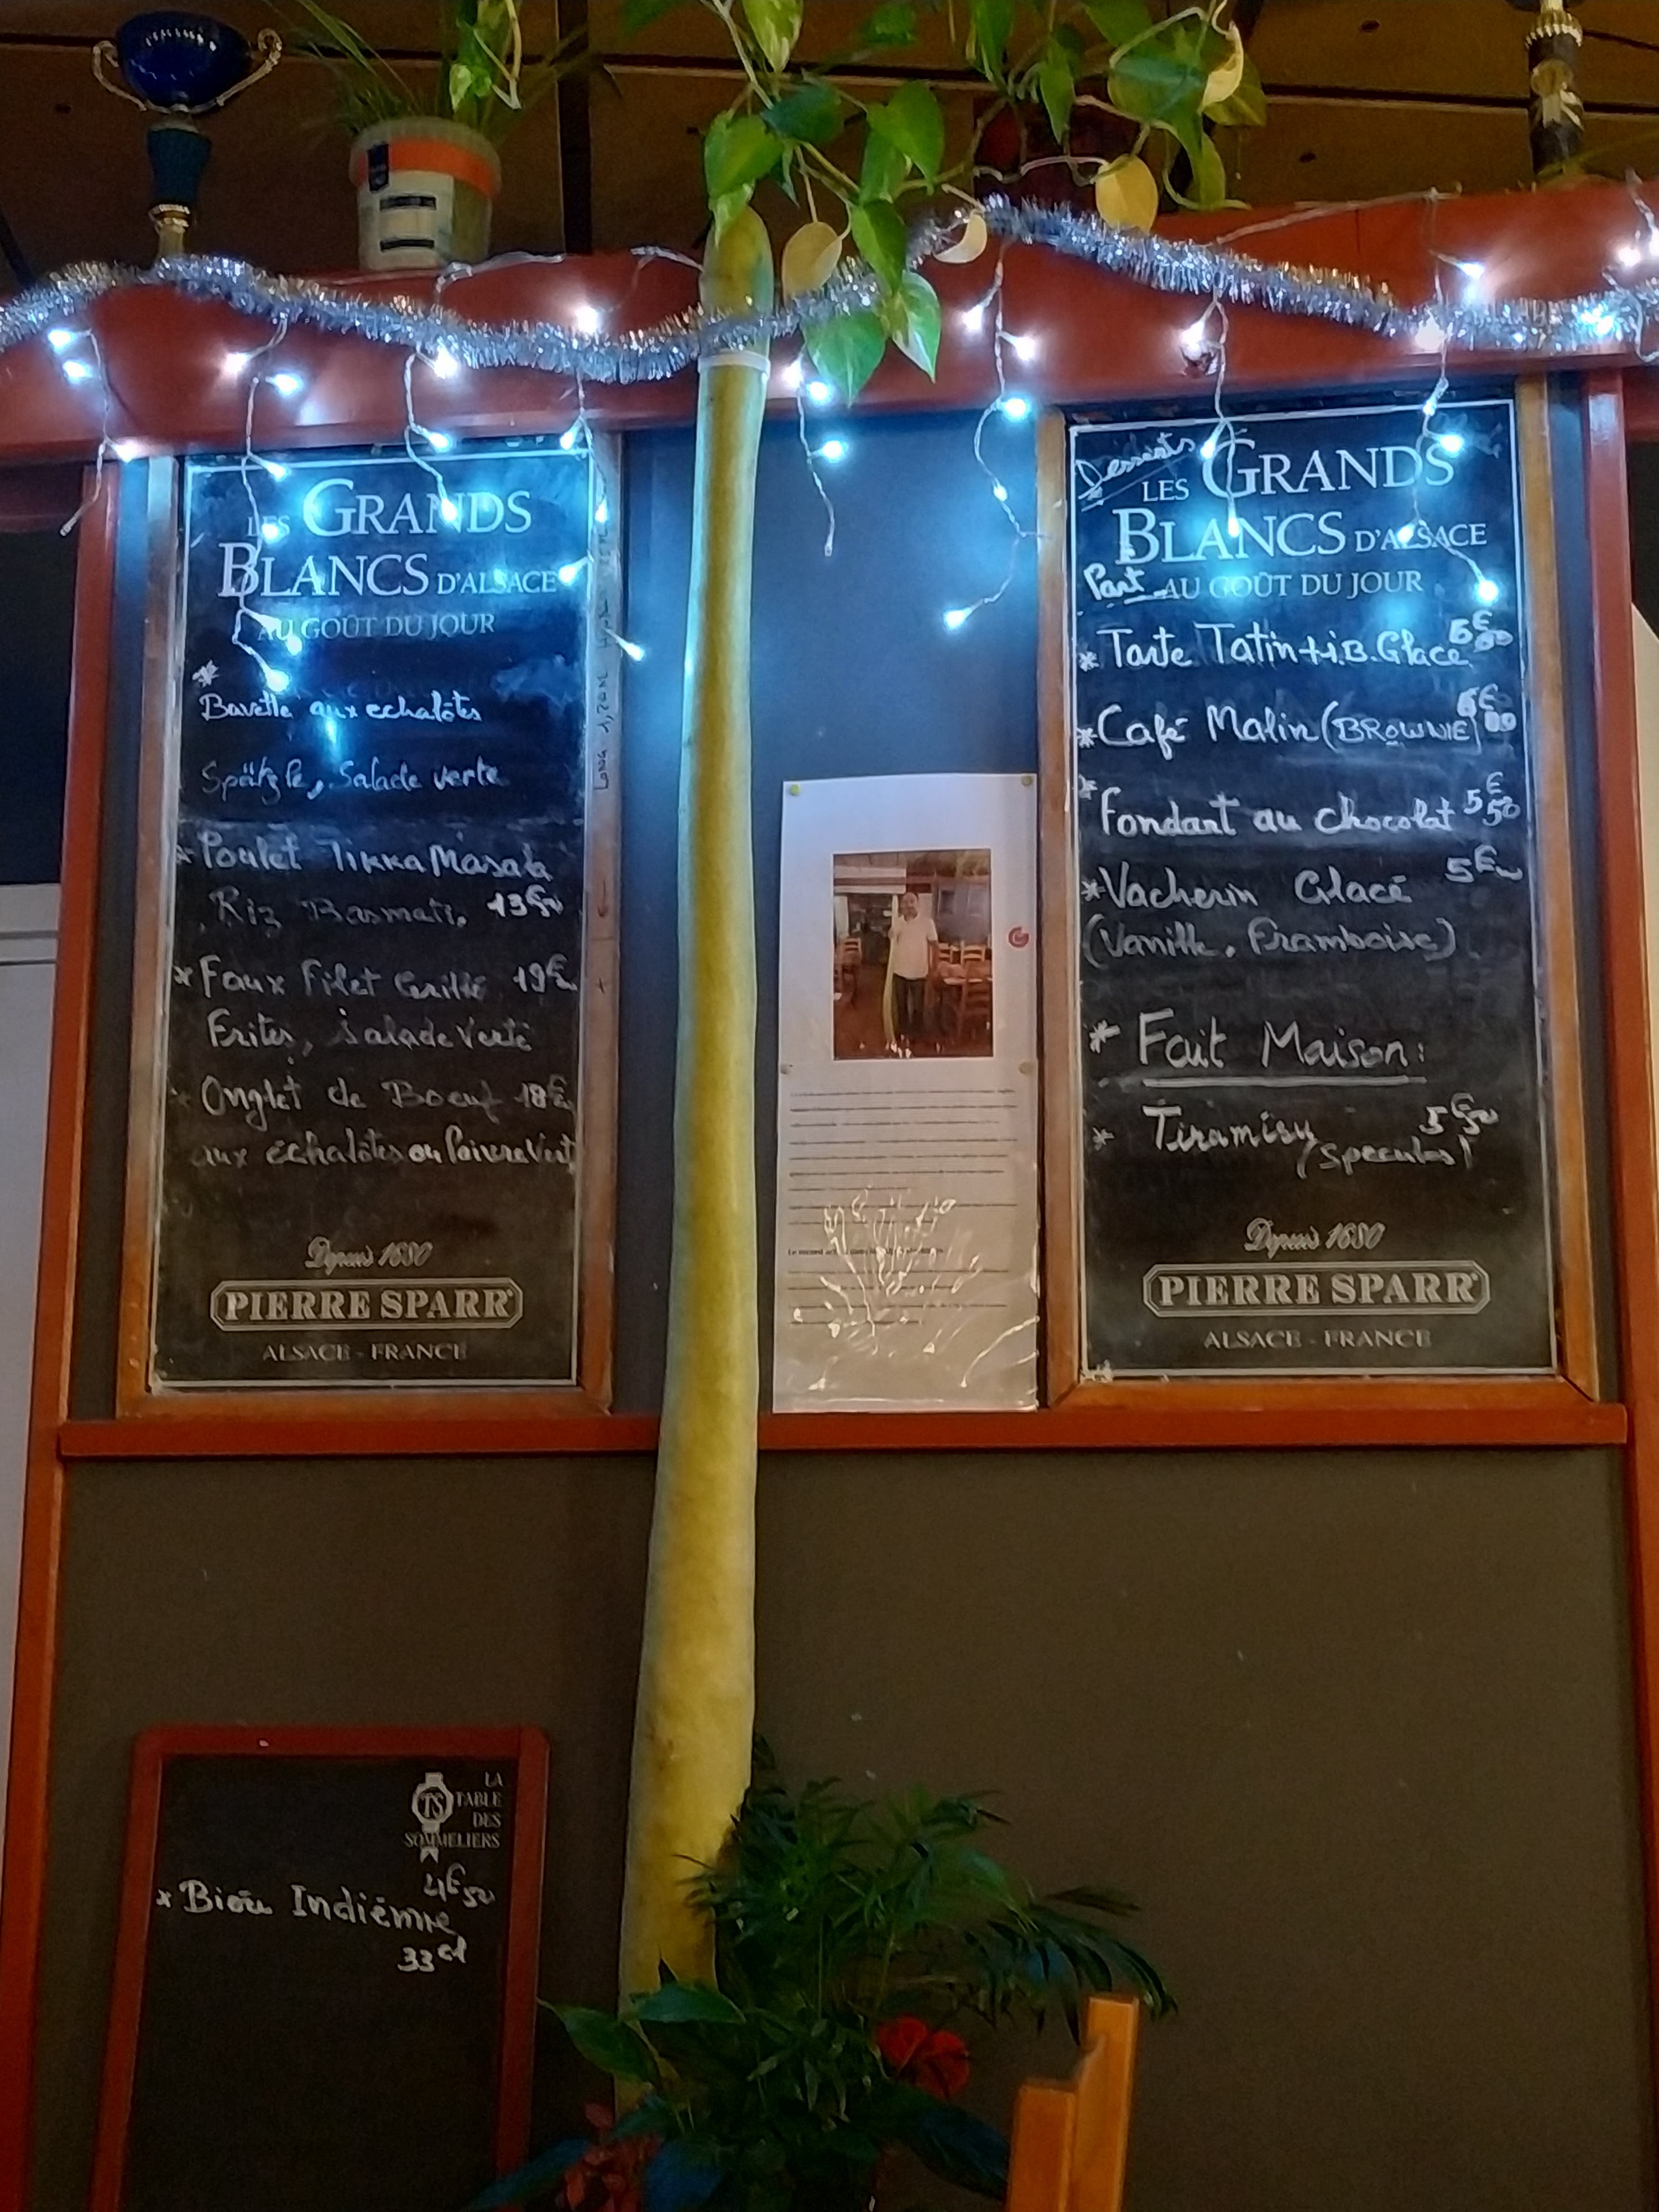 LES GRANDS
BLANCS D'ALSACE
AU GOÛT DU JOUR
*
Bavette aux echalôtes
Spätzle, Salade verte
* Poulet Tikka Masala
Riz Basmati. 13€50
* Faux Filet Grillé 19€
Frites, Salade Verte
* Onglet de Boeuf 18€
aux échalôtes ou Poivre Vert
Depuis 1680
PIERRE SPARR
ALSACE - FRANCE
Desserts
LES GRANDS
BLANCS D'ALSACE
Part AU GOÛT DU JOUR
* Tarte Tatin + 1.B. Glace 6€00
* Café Malin (BROWNIE) 6€00
* Fondant au chocolat 5€50
* Vacherin Glacé 5€
(Vanille, Framboise)
* Fait Maison:
* Tiramisu 5€50
(speculos)
Depuis 1680
PIERRE SPARR
ALSACE - FRANCE
LA
TS TABLE
DES
SOMMELIERS
4€50
* Bière Indiénne
33cl